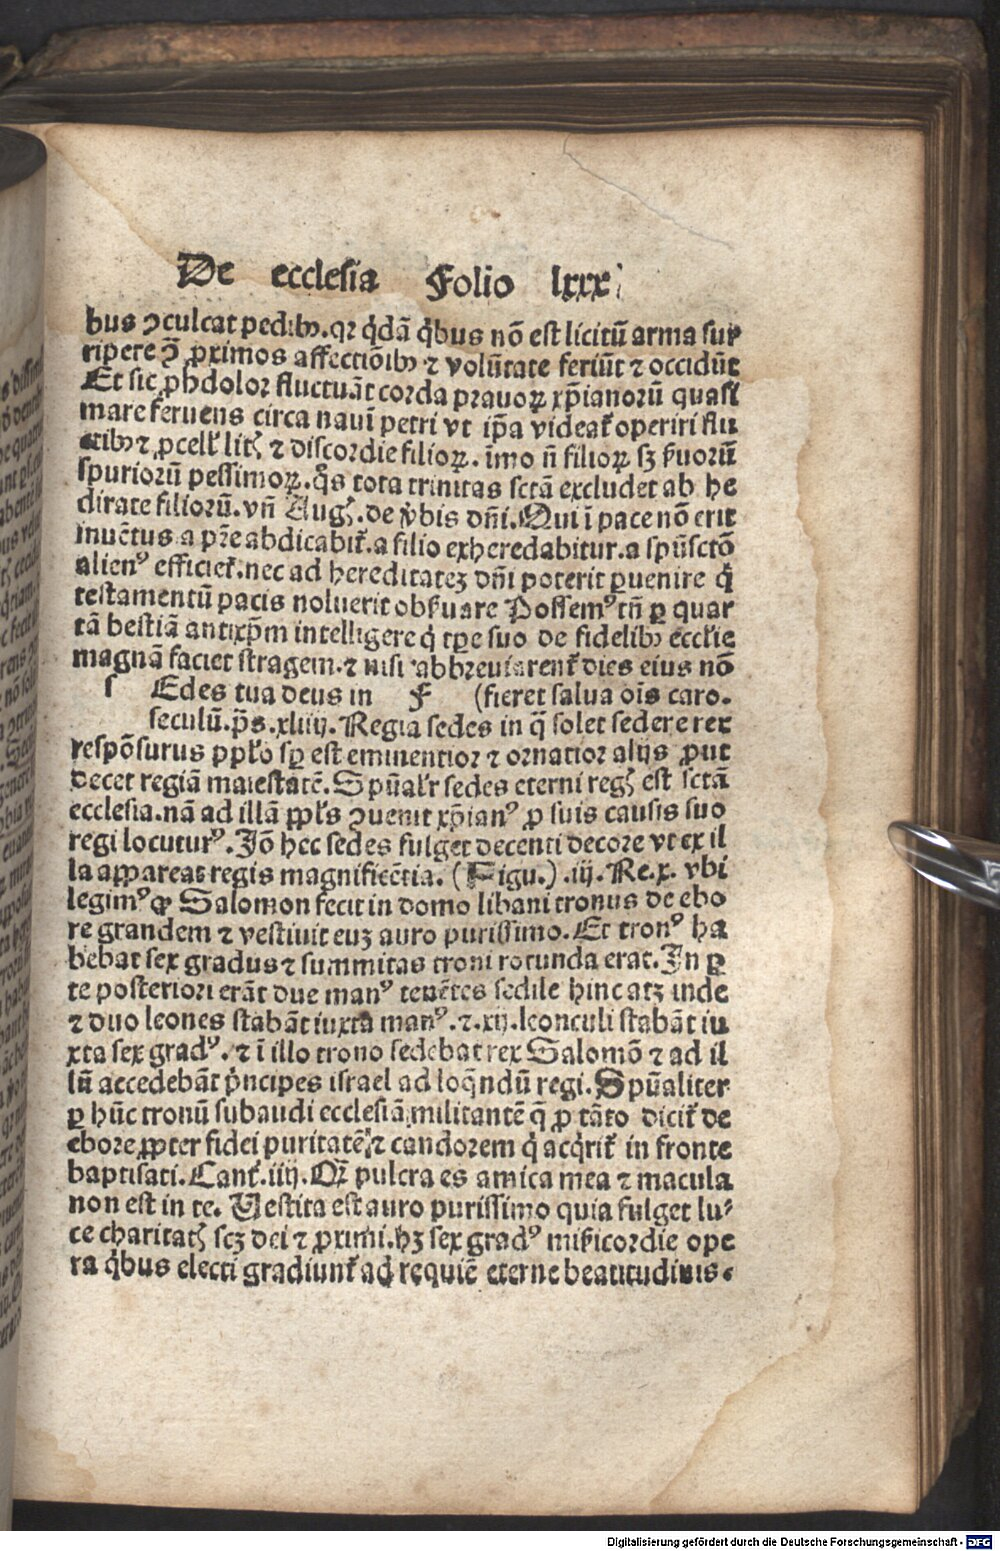 De ecclesia Folio lxxx
bus ꝯculcat pedibꝰ. qꝛ q̇dã q̇bus nõ est licitũ arma sur
ripere ꝯ̃ ꝓximos affectiõibꝰ ⁊ volũtate feriũt ⁊ occidũt
Et sic ꝓhdolor fluctuãt corda prauoꝝ xp̃ianorũ quasi
mare feruens circa nauĩ petri vt ip̃a videat᷑ operiri flu
ctibꝰ ⁊ ꝓcell᷑ lit᷒ ⁊ discordie filioꝝ. imo ñ filioꝝ sꝫ ẜuorũ
spuriorũ pessimoꝝ. q̊s tota trinitas sctã excludet ab he
ditate filiorũ. vñ Aug᷒. de v̓bis dñi. Qui ĩ pace nõ erit
inuẽtus a pr̃e abdicabit᷑. a filio exheredabitur. a spũsctõ
alienꝰ efficiet᷑. nec ad hereditateꝫ dñi poterit ꝑuenire q̇
testamentũ pacis noluerit obẜuare Possemꝰ tñ ꝑ quar
tã bestiã antixp̃m intelligere q̇ tꝑe suo de fidelibꝰ eccl̃ie
magnã faciet stragem. ⁊ nisi abbreuiarent᷑ dies eius nõ
s Edes tua deus in F (fieret salua oĩs caro.
seculũ. p̃s. xliiij. Regia sedes in q̃ solet sedere rex
respõsurus ppl̃o sꝑ est eminentior ⁊ ornatior alijs ꝓut
decet regiã maiestatẽ. Spũal̓r sedes eterni reg᷒ est sctã
ecclesia. nã ad illã ppl̃s ꝯuenit xp̃ianꝰ ꝓ suis causis suo
regi locuturꝰ. Jõ hec sedes fulget decenti decore vt ex il
la appareat regis magnificẽtia. (Figu.) .iij. Re. x. vbi
legimꝰ ꝙ Salomon fecit in domo libani tronus de ebo
re grandem ⁊ vestiuit euꝫ auro purissimo. Et tronꝰ ha
bebat sex gradus ⁊ summitas troni rotunda erat. Jn ꝑ
te posteriori erãt due manꝰ tenẽtes sedile hinc atꝫ inde
⁊ duo leones stabãt iuxta manꝰ. ⁊ .xij. leonculi stabãt iu
xta sex gradꝰ. ⁊ ĩ illo trono sedebat rex Salomõ ⁊ ad il
lũ accedebãt p̓ncipes israel ad loq̃ndũ regi. Spũaliter
ꝑ hũc tronũ subaudi ecclesiã militantẽ q̃ ꝓ tãto dicit᷑ de
ebore ꝓpter fidei puritatẽ ⁊ candorem q̇ acq̇rit᷑ in fronte
baptisati. Cant᷑. iiij. Qꝛ̃ pulcra es amica mea ⁊ macula
non est in te. Vestita est auro purissimo quia fulget lu⸗
ce charitat᷒ scꝫ dei ⁊ ꝓximi. hꝫ sex gradꝰ mi᷑icordie ope
ra q̇bus electi gradiunt᷑ ad requiẽ eterne beatitudinis.
Digitalisierung gefördert durch die Deutsche Forschungsgemeinschaft - DFG